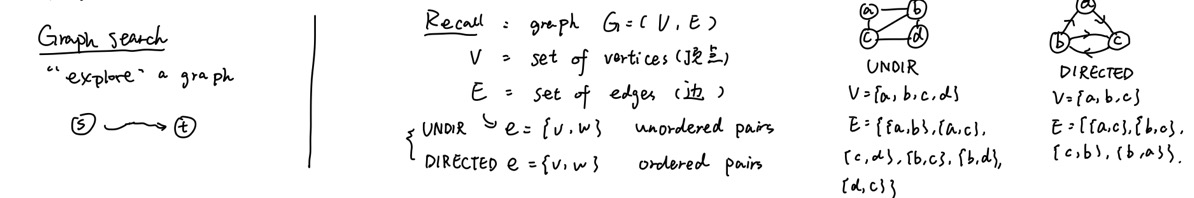 Graph search
"explore" a graph
s t
Recall : graph G=(V, E)
V = set of vertices (顶点)
E = set of edges (边)
UNDIR e={v,w} unordered pairs
DIRECTED e={v,w} ordered pairs
a b
c d
UNDIR
V={a,b,c,d}
E={{a,b},{a,c},
{c,d},{b,c},{b,d},
{d,c}}
a
b c
DIRECTED
V={a,b,c}
E={{a,c},{b,c},
{c,b},{b,a}}.